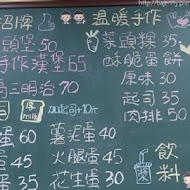 招牌
頭堡50
手作漢堡65
三明治70
加起司+10元
蛋60
蛋45
35
溫暖手作
菜頭粿35
酥脆蛋餅
原味30
起司35
肉排50
薯泥蛋40
火腿蛋45
花生蛋30
飲料